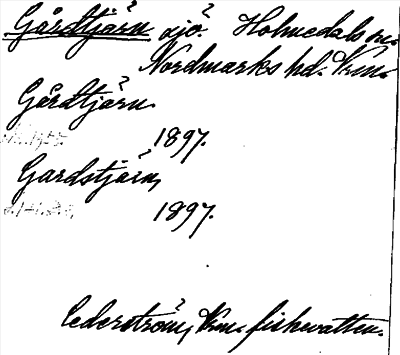 Gårdtjärn sjö. Holmedals sn.
Nordmarks hd. Vrm.
Gårdtjärn
1897.
Gardstjärn,
1897.
Cederström, Vrm. fiskevatten.